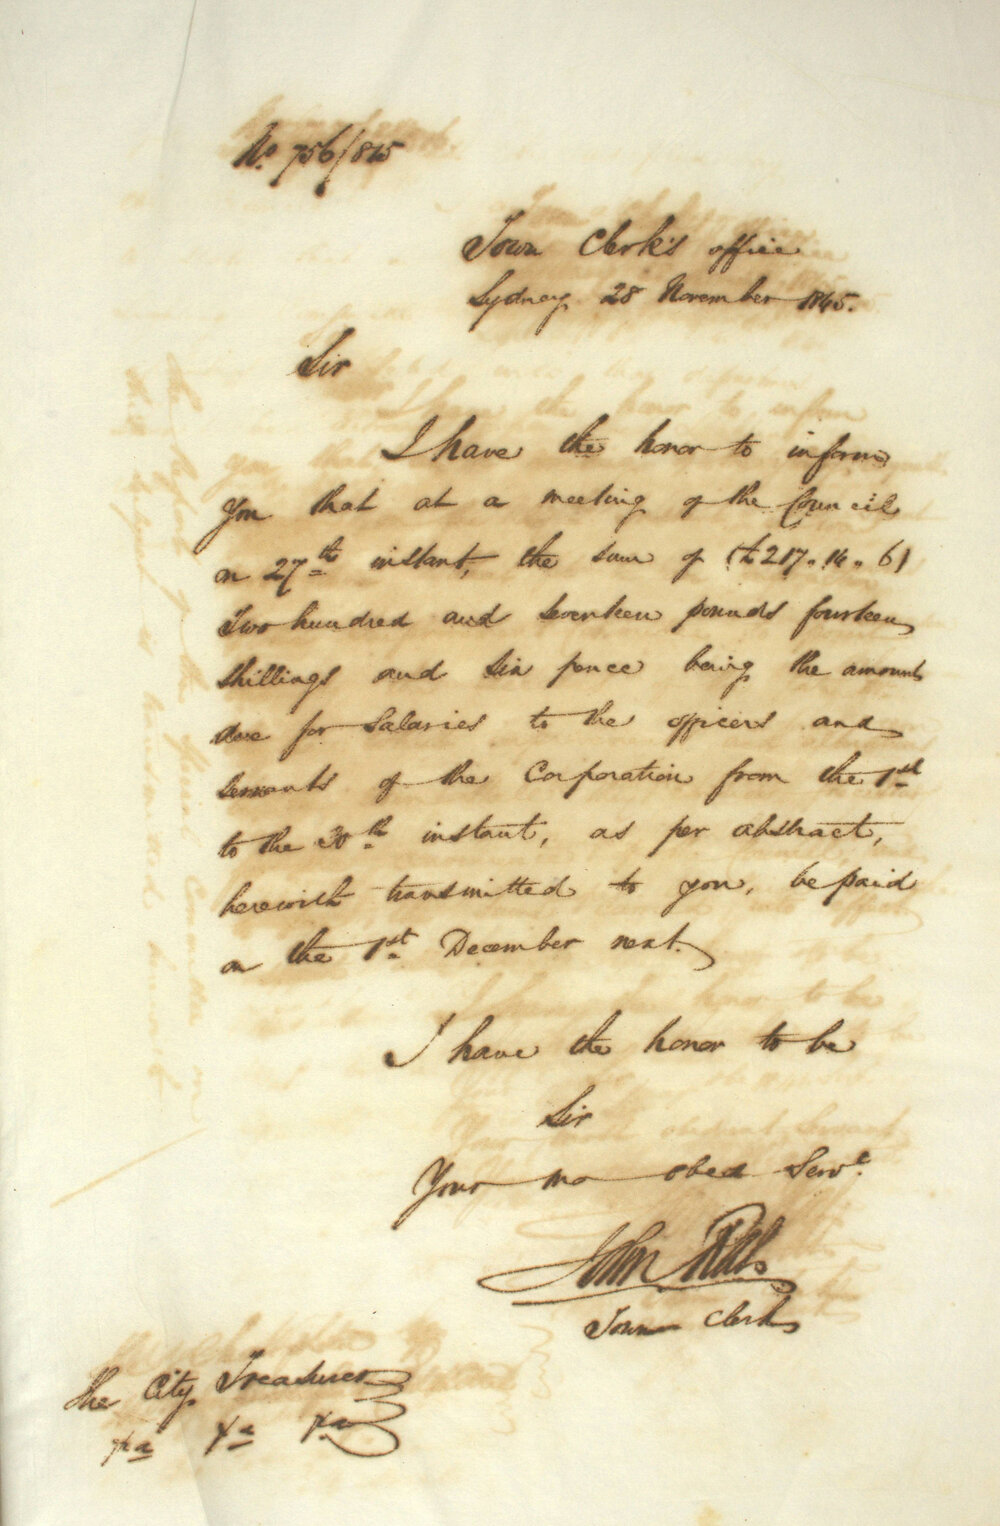 No. 756/845
Town Clerk's office
Sydney 28 November 1845.
Sir
I have the honor to inform
you that at a meeting of the Council
on 27th instant, the sum of (£217.14.6)
Two hundred and seventeen pounds fourteen
shillings and six pence being the amount
due for Salaries to the officers and
servants of the Corporation from the 1st
to the 30th instant, as per abstract,
herewith transmitted to you, be paid
on the 1st December next.
I have the honor to be
Sir
Your mo obed Servt
John
Town Clerk
The City Treasurer